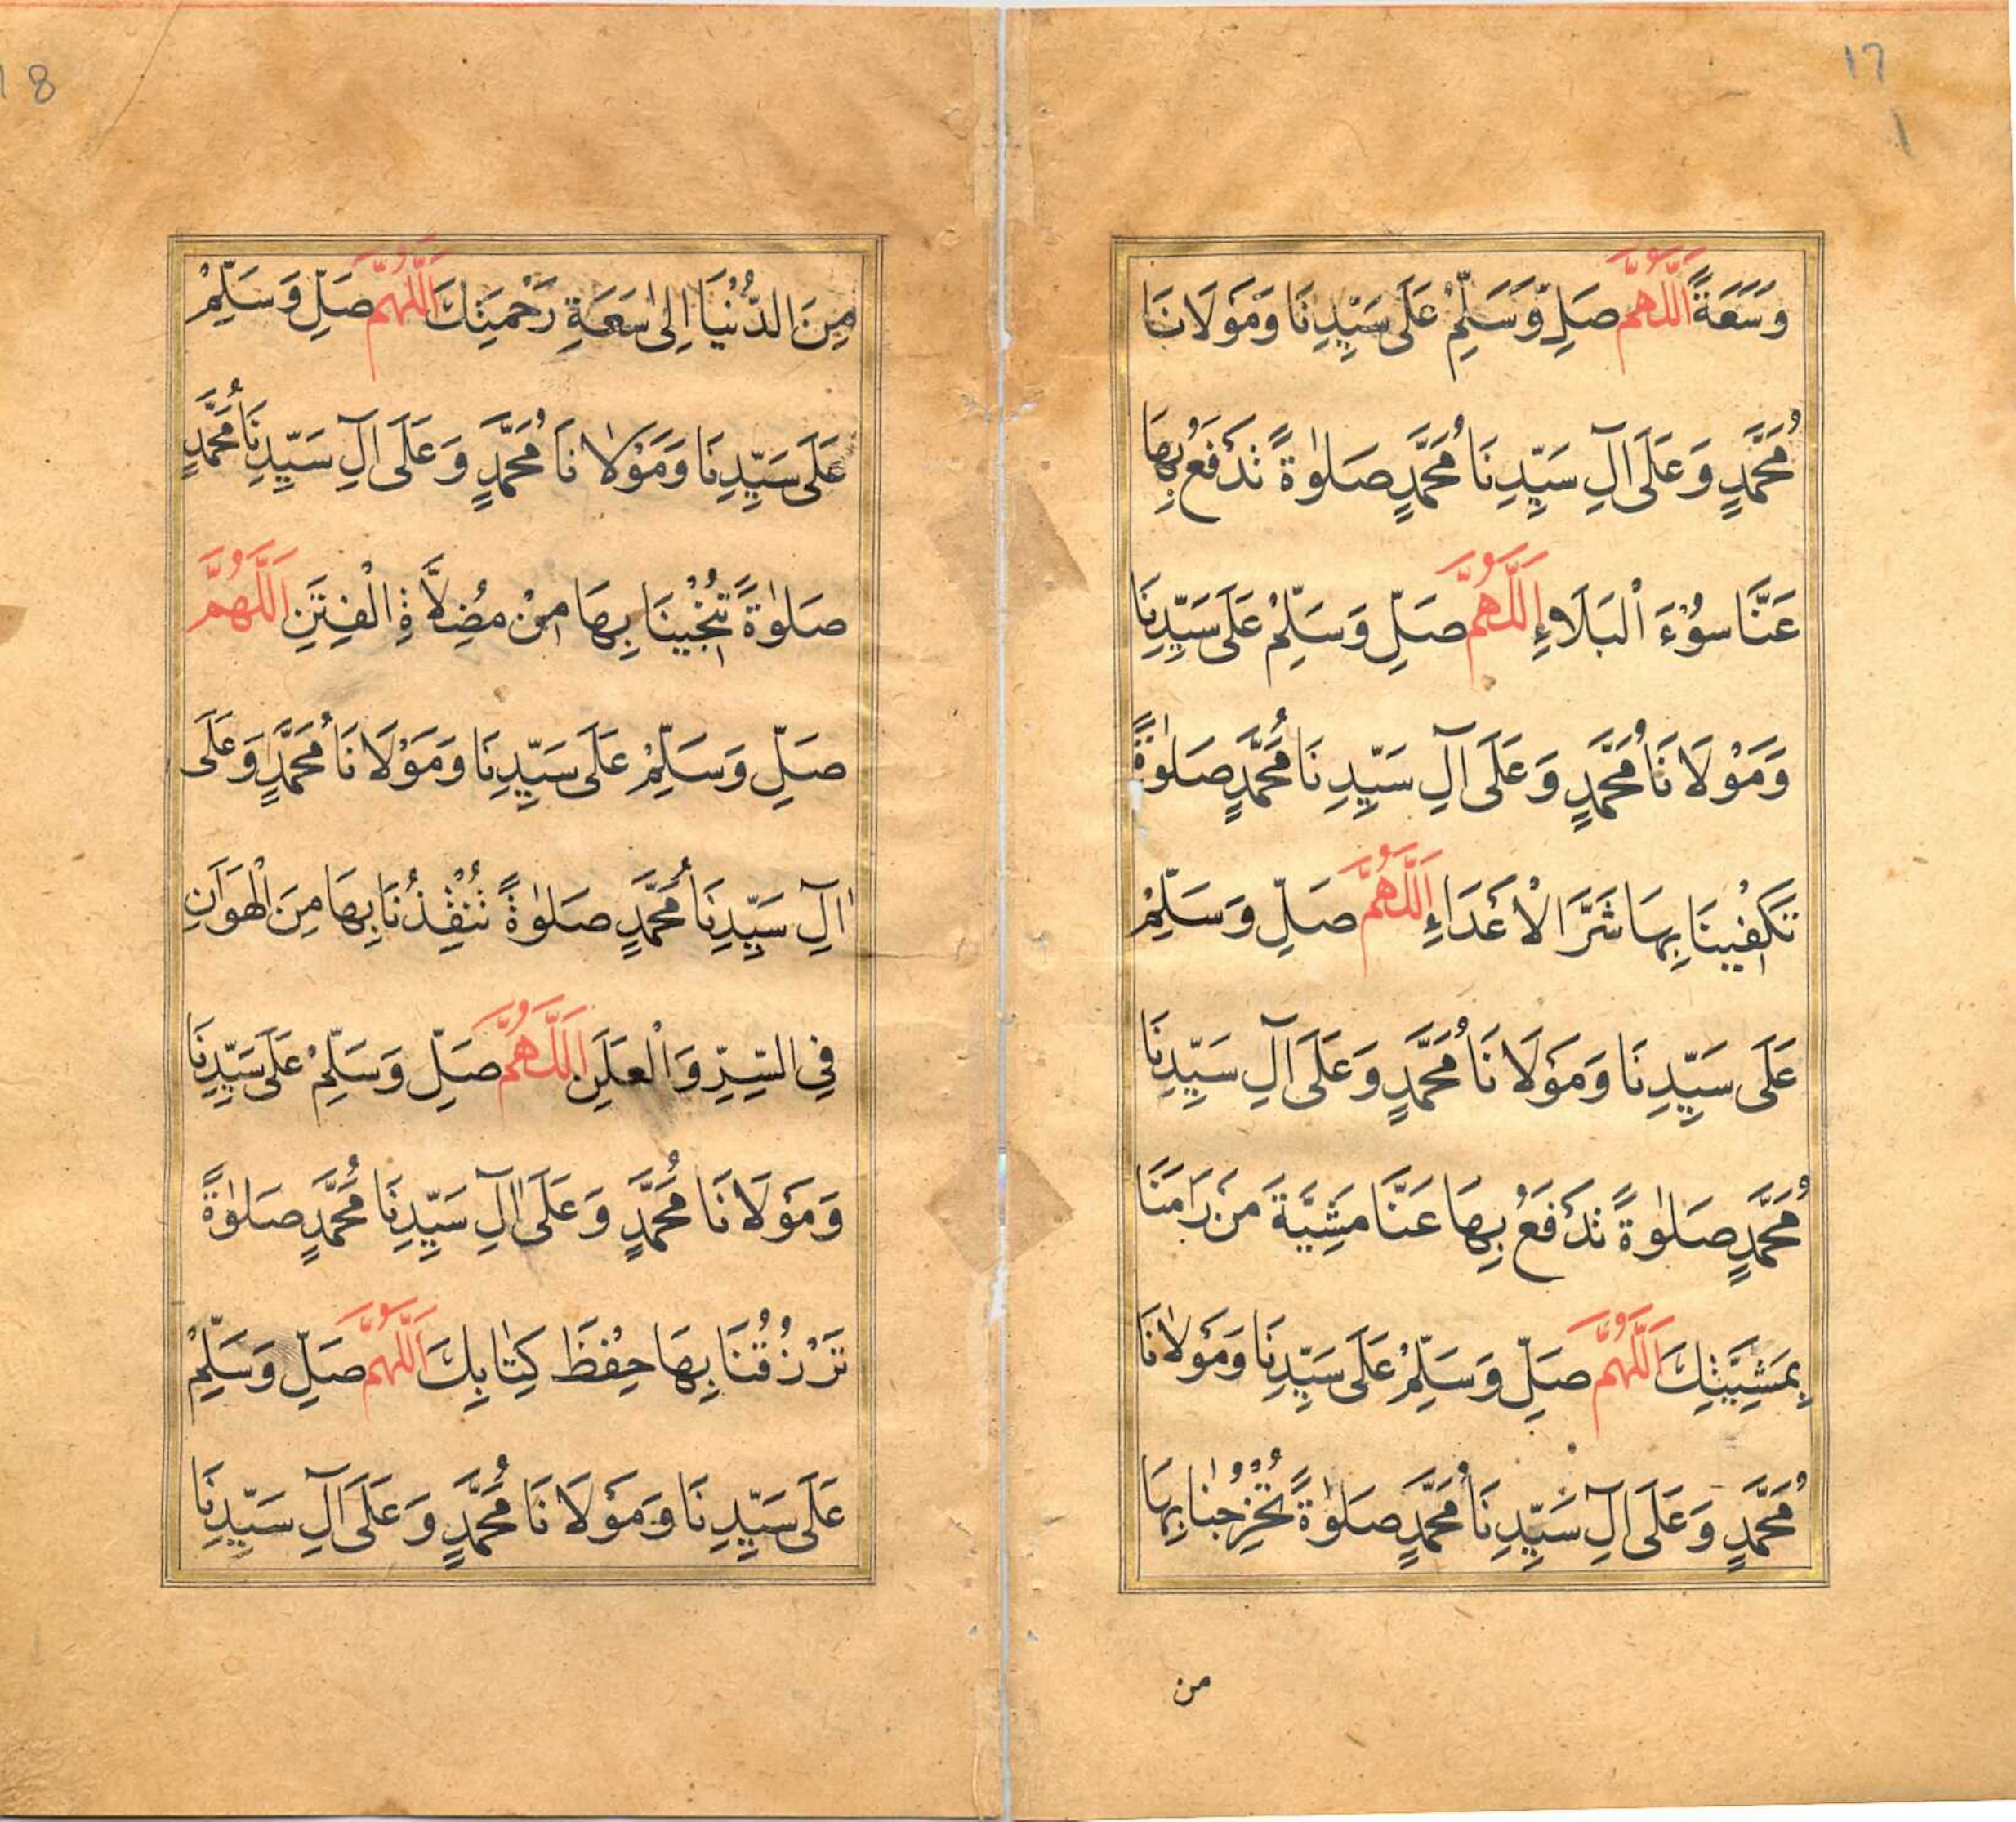 17
وَسَعَةً اَللّٰهُمَّ صَلِّ وَسَلِّمْ عَلَى سَيِّدِنَا وَمَوْلَانَا
مُحَمَّدٍ وَعَلَى اٰلِ سَيِّدِنَا مُحَمَّدٍ صَلٰوةً تَدْفَعُ بِهَا
عَنَّا سُوْءَ الْبَلَاءِ اَللّٰهُمَّ صَلِّ وَسَلِّمْ عَلَى سَيِّدِنَا
وَمَوْلَانَا مُحَمَّدٍ وَعَلَى اٰلِ سَيِّدِنَا مُحَمَّدٍ صَلٰوةً
تَكْفِيْنَا بِهَا شَرَّ الْاَعْدَاءِ اَللّٰهُمَّ صَلِّ وَسَلِّمْ
عَلَى سَيِّدِنَا وَمَوْلَانَا مُحَمَّدٍ وَعَلَى اٰلِ سَيِّدِنَا
مُحَمَّدٍ صَلٰوةً تَدْفَعُ بِهَا عَنَّا مَشِيَّةَ مَنْ رَامَنَا
بِمَشِيَّتِكَ اَللّٰهُمَّ صَلِّ وَسَلِّمْ عَلَى سَيِّدِنَا وَمَوْلَانَا
مُحَمَّدٍ وَعَلَى اٰلِ سَيِّدِنَا مُحَمَّدٍ صَلٰوةً تُخْرِجُنَا بِهَا
من
18
مِنَ الدُّنْيَا اِلٰى سَعَةِ رَحْمَتِكَ اَللّٰهُمَّ صَلِّ وَسَلِّمْ
عَلَى سَيِّدِنَا وَمَوْلَانَا مُحَمَّدٍ وَعَلَى اٰلِ سَيِّدِنَا مُحَمَّدٍ
صَلٰوةً تُنْجِيْنَا بِهَا مِنْ مُضِلَّاةِ الْفِتَنِ اَللّٰهُمَّ
صَلِّ وَسَلِّمْ عَلَى سَيِّدِنَا وَمَوْلَانَا مُحَمَّدٍ وَعَلَى
اٰلِ سَيِّدِنَا مُحَمَّدٍ صَلٰوةً تُنْقِذُنَا بِهَا مِنَ الْهَوَانِ
فِي السِّرِّ وَالْعَلَنِ اَللّٰهُمَّ صَلِّ وَسَلِّمْ عَلَى سَيِّدِنَا
وَمَوْلَانَا مُحَمَّدٍ وَعَلَى اٰلِ سَيِّدِنَا مُحَمَّدٍ صَلٰوةً
تَرْزُقُنَا بِهَا حِفْظَ كِتَابِكَ اَللّٰهُمَّ صَلِّ وَسَلِّمْ
عَلَى سَيِّدِنَا وَمَوْلَانَا مُحَمَّدٍ وَعَلَى اٰلِ سَيِّدِنَا